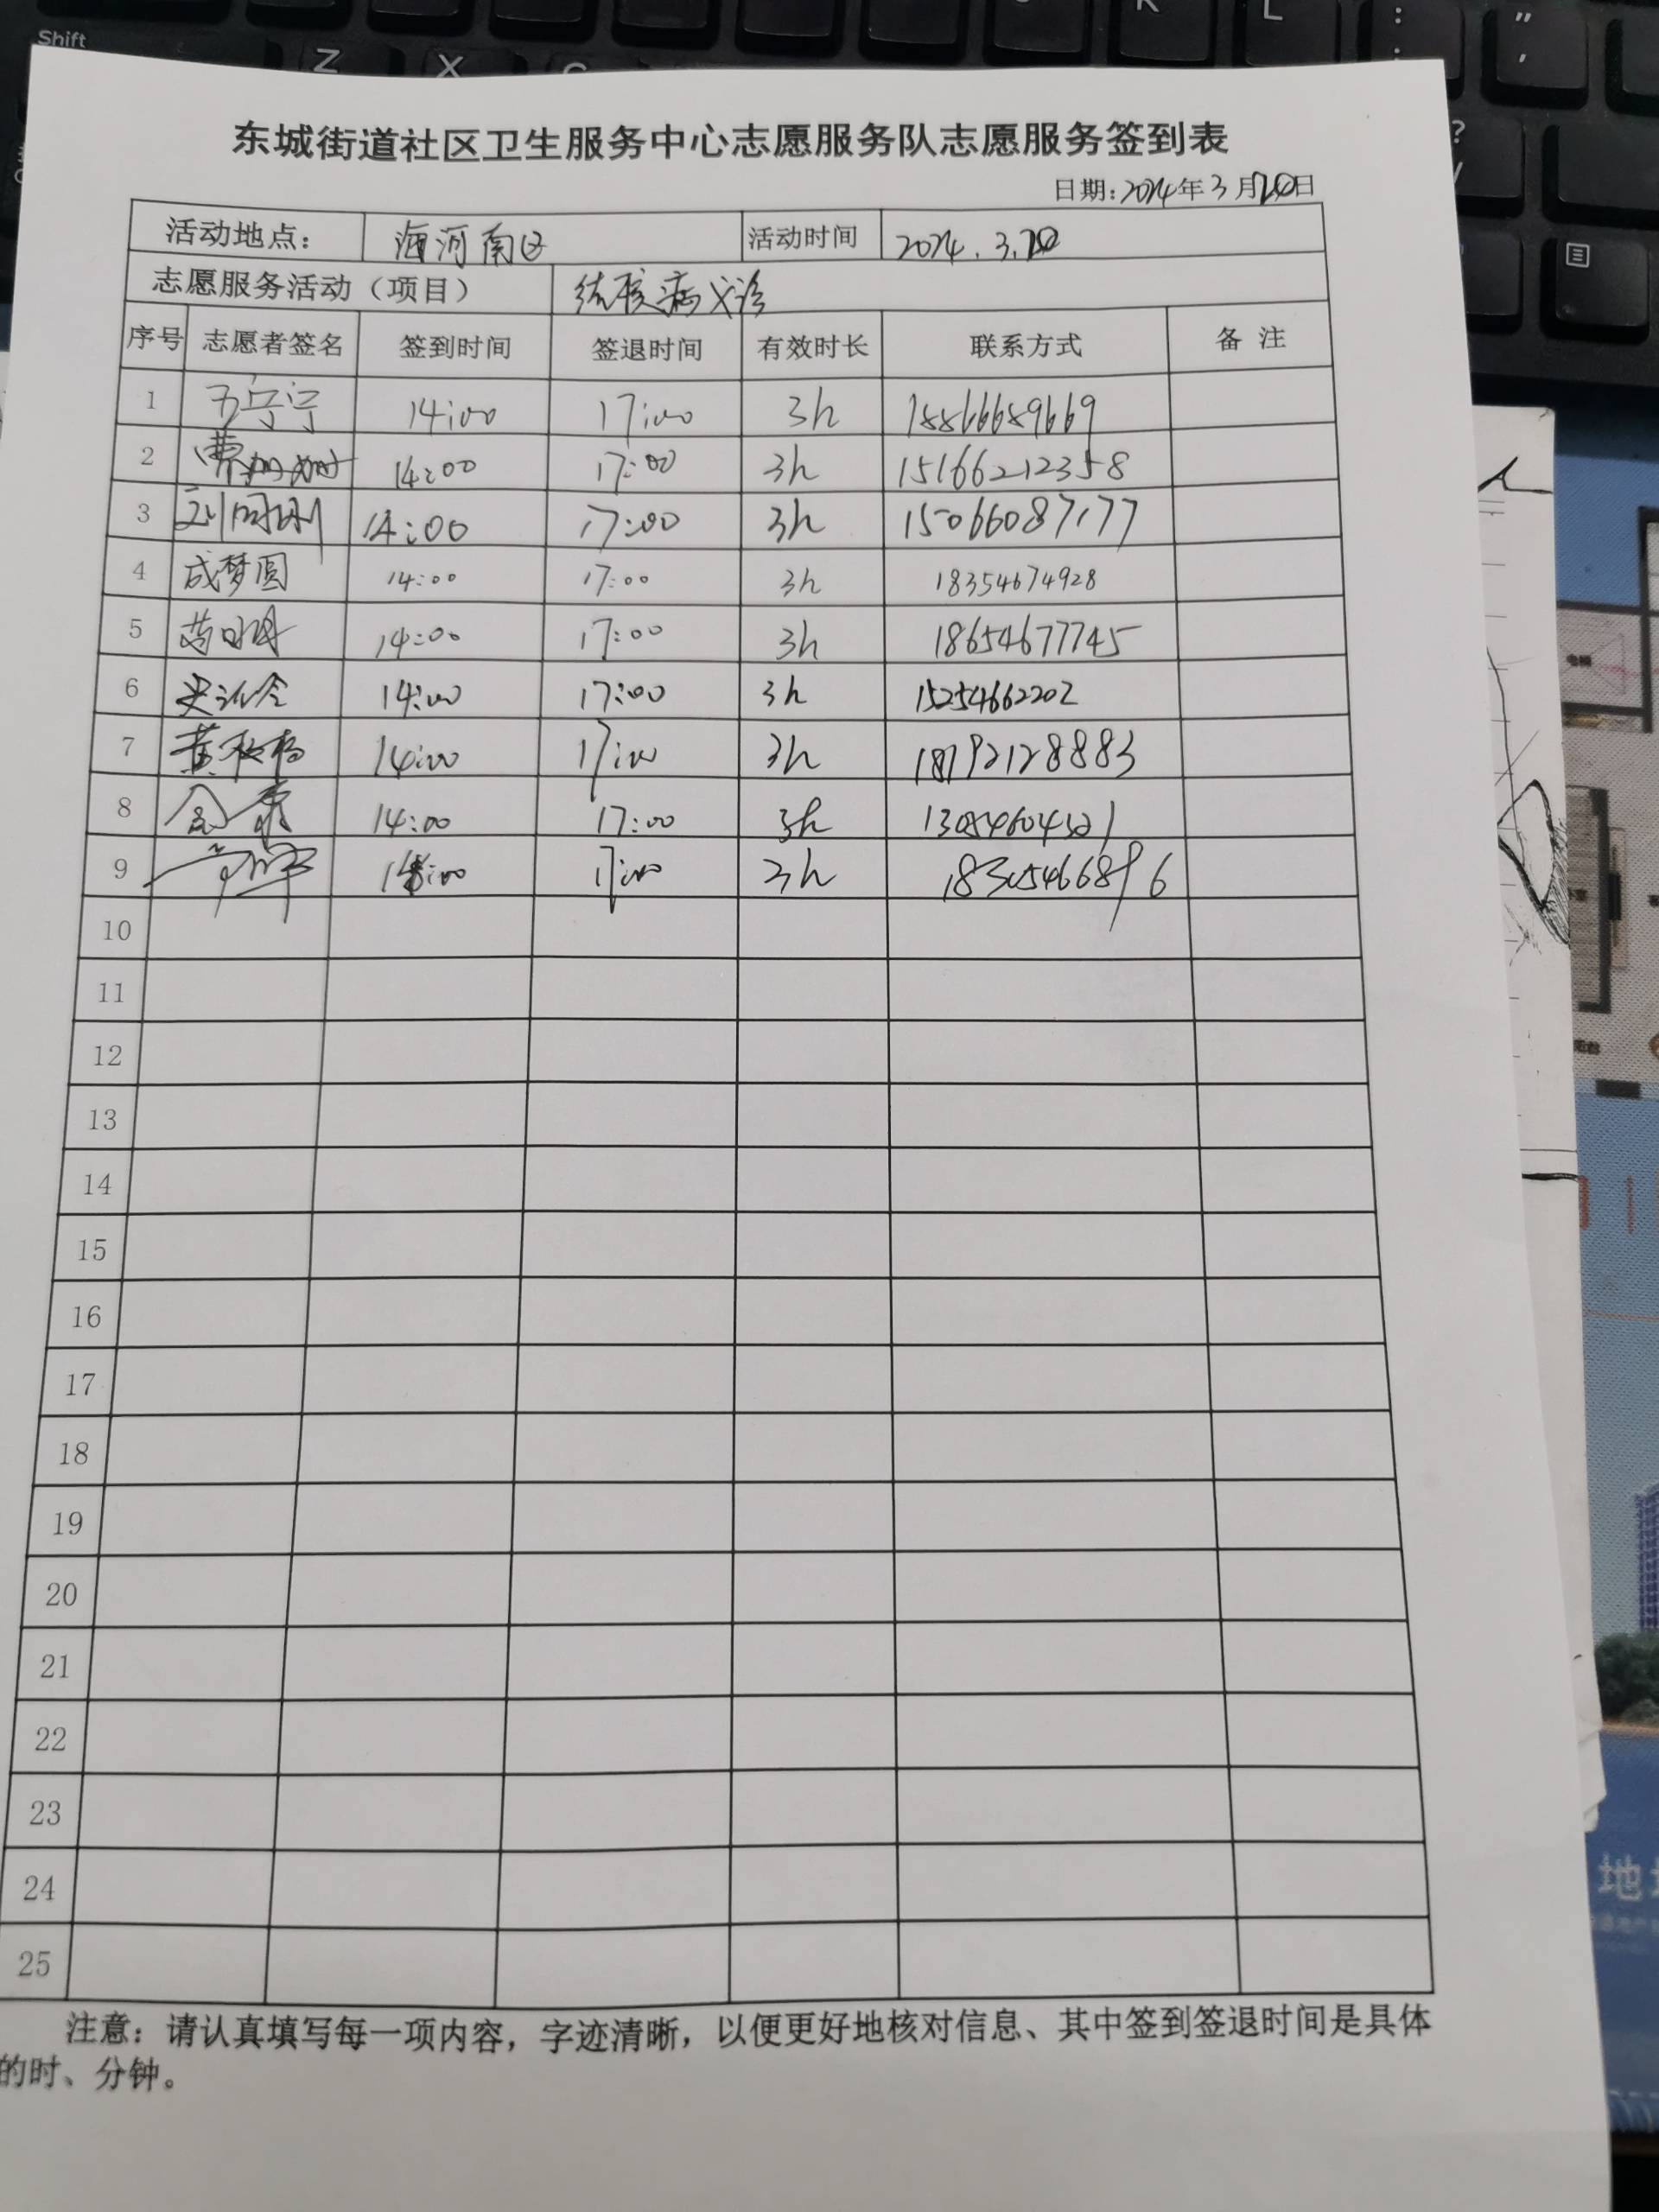 Shift
Z X
K L : ; " '
?
东城街道社区卫生服务中心志愿服务队志愿服务签到表
日期:2024年3月20日
活动地点: 海河南区 活动时间 2024.3.20
志愿服务活动（项目） 结核病义诊
序号 志愿者签名 签到时间 签退时间 有效时长 联系方式 备 注
1 宁宁 14:00 17:00 3h 18866689669
2 14:00 17:00 3h 15166212358
3 刘 14:00 17:00 3h 15066087177
4 成梦圆 14:00 17:00 3h 18354674928
5 14:00 17:00 3h 18654677745
6 14:00 17:00 3h 15254662202
7 黄 14:00 17:00 3h 18792128883
8 14:00 17:00 3h
9 14:00 17:00 3h 18305466896
10
11
12
13
14
15
16
17
18
19
20
21
22
23
24
25
注意：请认真填写每一项内容，字迹清晰，以便更好地核对信息、其中签到签退时间是具体
的时、分钟。
地